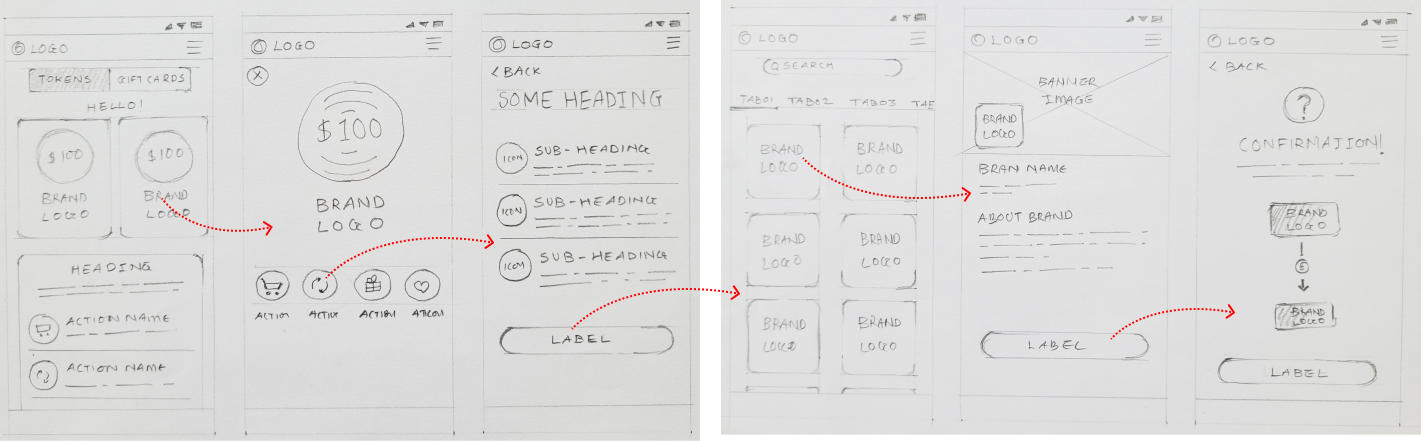 LOGO
TOKENS GIFT CARDS
HELLO!
$100 $100
BRAND BRAND
LOGO LOGO
HEADING
ACTION NAME
ACTION NAME
LOGO
X
$100
BRAND
LOGO
ACTION ACTION ACTION
LOGO
< BACK
SOME HEADING
ICON SUB-HEADING
ICON SUB-HEADING
ICON SUB-HEADING
LABEL
LOGO
SEARCH
TAB01 TAB02 TAB03 TAB
BRAND BRAND
LOGO LOGO
BRAND BRAND
LOGO LOGO
BRAND BRAND
LOGO LOGO
LOGO
BANNER
IMAGE
BRAND
LOGO
BRAN NAME
ABOUT BRAND
LABEL
LOGO
< BACK
?
CONFIRMATION!
BRAND
LOGO
BRAND
LOGO
LABEL